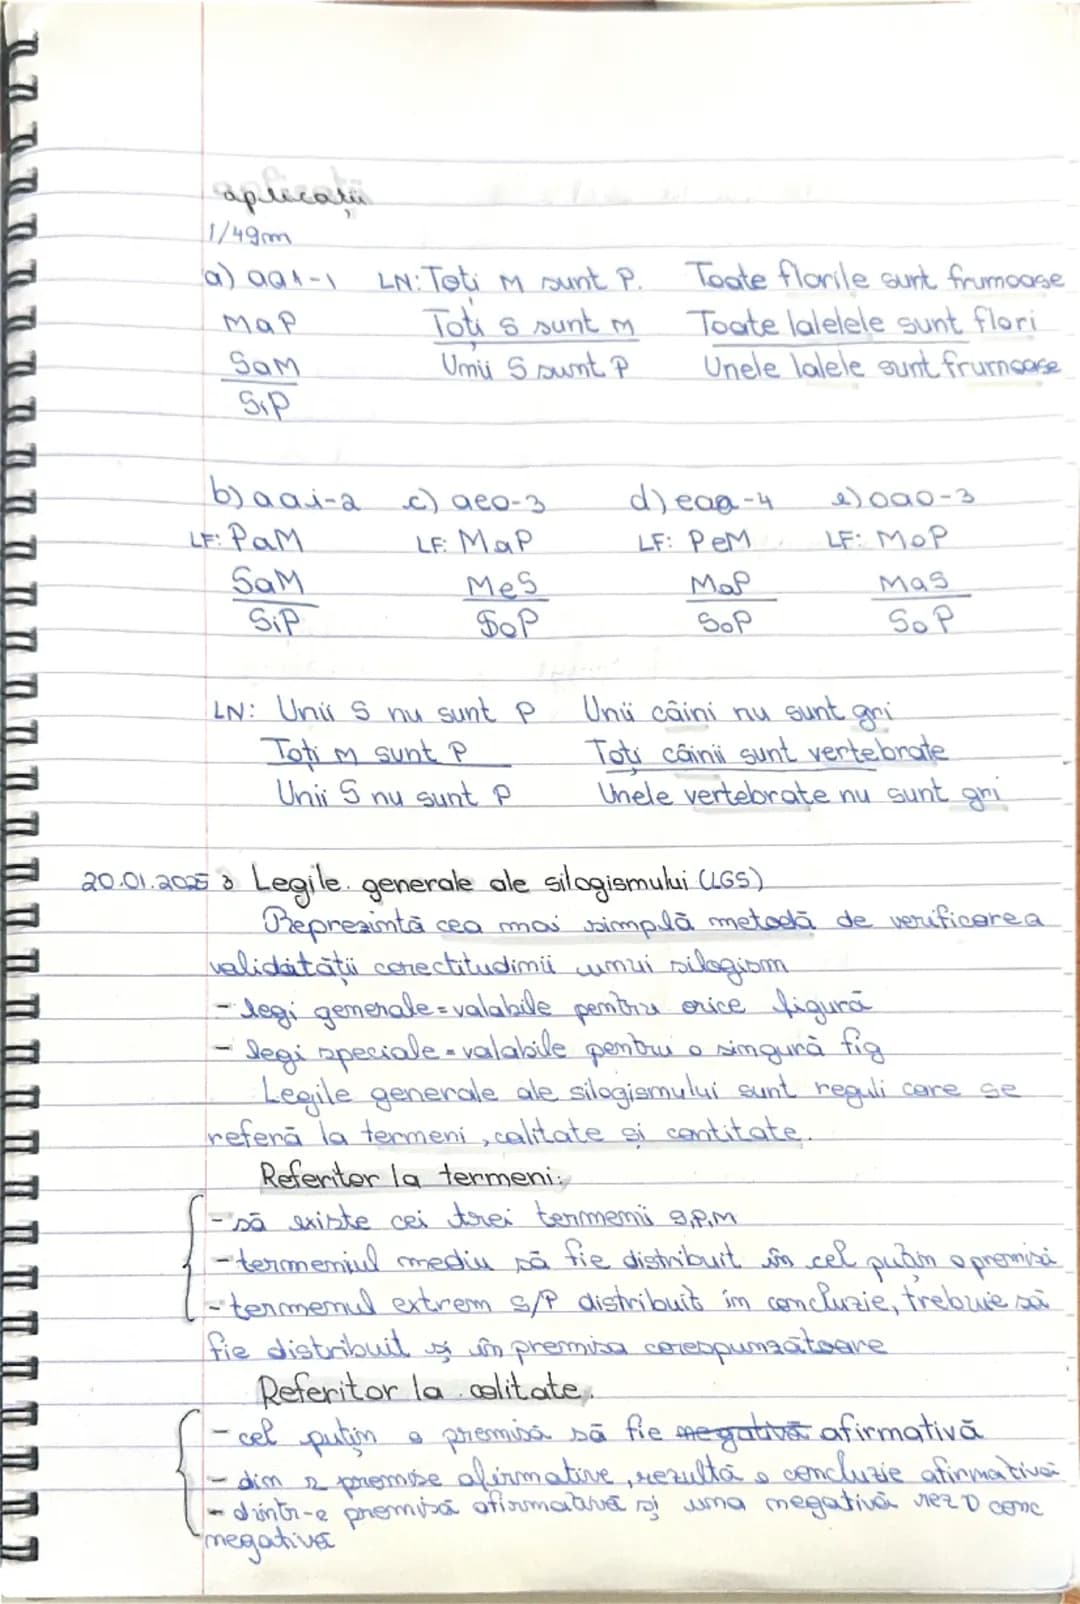 aplicații
1/49m
a) aai-1 LN: Toți M sunt P. Toate florile sunt frumoase
MaP Toți S sunt M Toate lalelele sunt flori
SaM Unii S sunt P Unele lalele sunt frumoase
SiP
b) aai-2 c) aeo-3 d) eaa-4 e) oao-3
LF: PaM LF: MaP LF: PeM LF: MoP
SaM MeS MaP MaS
SiP SoP SoP SoP
LN: Unii S nu sunt P Unii câini nu sunt gri
Toți M sunt P Toți câinii sunt vertebrate
Unii S nu sunt P Unele vertebrate nu sunt gri
20.01.2025 3 Legile generale ale silogismului (LGS)
Reprezintă cea mai simplă metodă de verificarea
validității corectitudinii unui silogism
- legi generale = valabile pentru orice figură
- legi speciale = valabile pentru o singură fig
Legile generale ale silogismului sunt reguli care se
referă la termeni, calitate și cantitate.
Referitor la termeni:
- să existe cei trei termenii S,P,M
- termeniul mediu să fie distribuit în cel puțin o premisă
- termenul extrem S/P distribuit în concluzie, trebuie să
fie distribuit și în premisa corespunzătoare
Referitor la calitate.
- cel puțin o premisă să fie negativă afirmativă
- din 2 premise afirmative, rezultă o concluzie afirmativă
- dintr-o premisă afirmativă și una negativă rez D conc
negativă